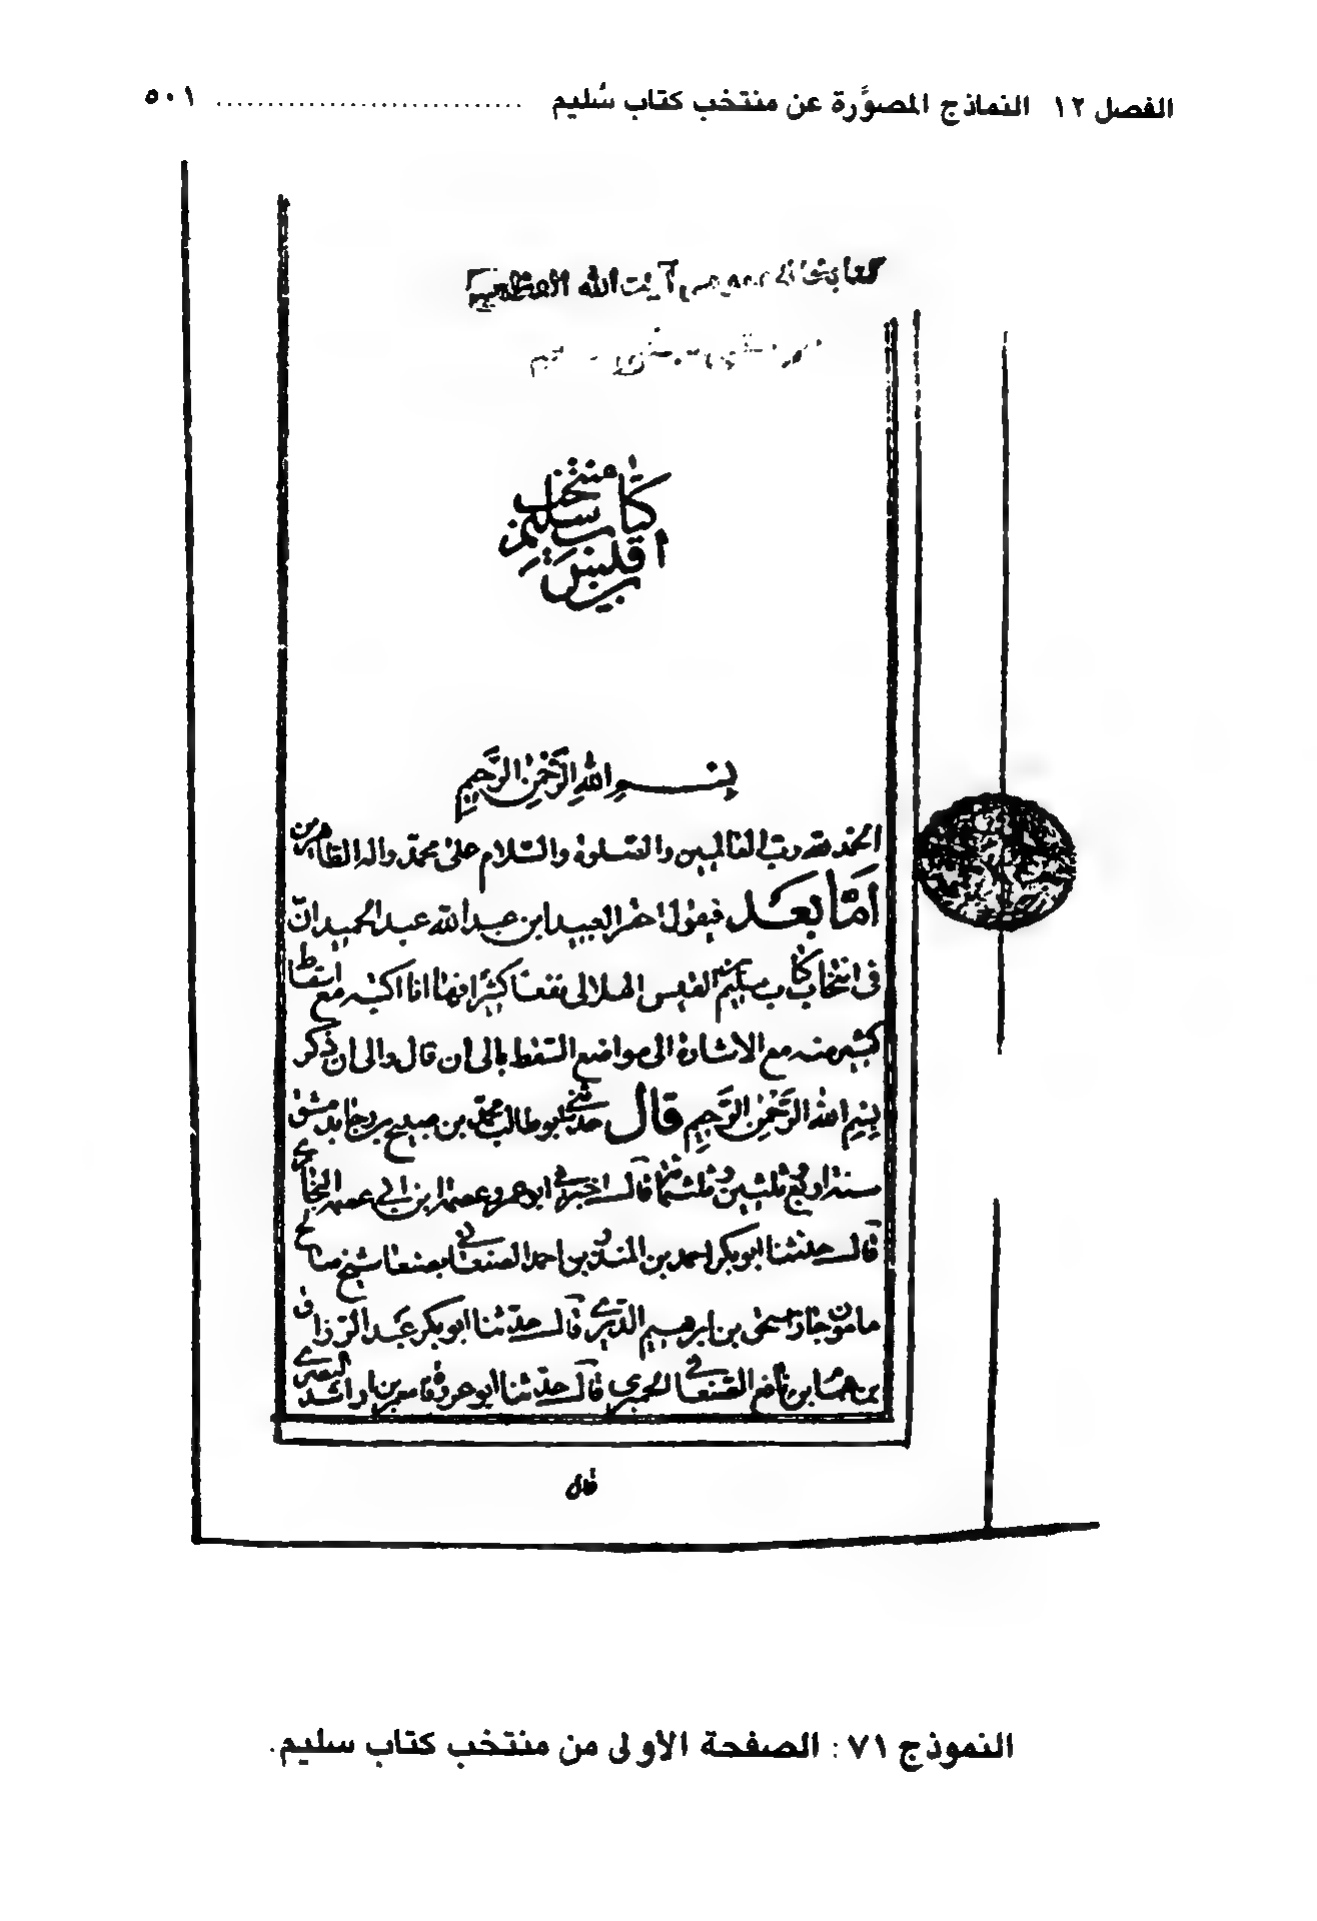 الفصل ١٢ النماذج المصوَّرة عن منتخب كتاب سُليم ........................................ ٥٠١
آيت الله العظمى
منتخب
كتاب سليم
قيس
بن
بِسْمِ اللهِ الرَّحْمٰنِ الرَّحِيمِ
الحمد لله رب العالمين والصلوة والسلام على محمد واله الطاهرين
اما بعد فيقول احقر العبيد ابن عبد الله عبد الحميد ان
فى انتخاب كتاب سليم القيس الهلالى نفعا كثيرا فها انا اكتبه مع اسقاط
كثير منه مع الاشارة الى مواضع السقط بالى ان قال والى ان ذكر
بِسْمِ اللهِ الرَّحْمٰنِ الرَّحِيمِ قال حدثنى ابو طالب محمد بن صبيح بن رجا بدمشق
سنة اربع وثلثين وثلثمائة قال اخبرنى ابو عمرو عصمة ابن ابى عصمة البخارى
قال حدثنا ابو بكر احمد بن المنذر بن احمد الصنعانى بصنعا شيخ صالح
مامون جار اسحق بن ابرهيم الدبرى قال حدثنا ابو بكر عبد الرزاق
بن همام بن نافع الصنعانى الحميرى قال حدثنا ابو عروة معمر بن راشد البصرى
قال
النموذج ٧١ : الصفحة الأولى من منتخب كتاب سليم.